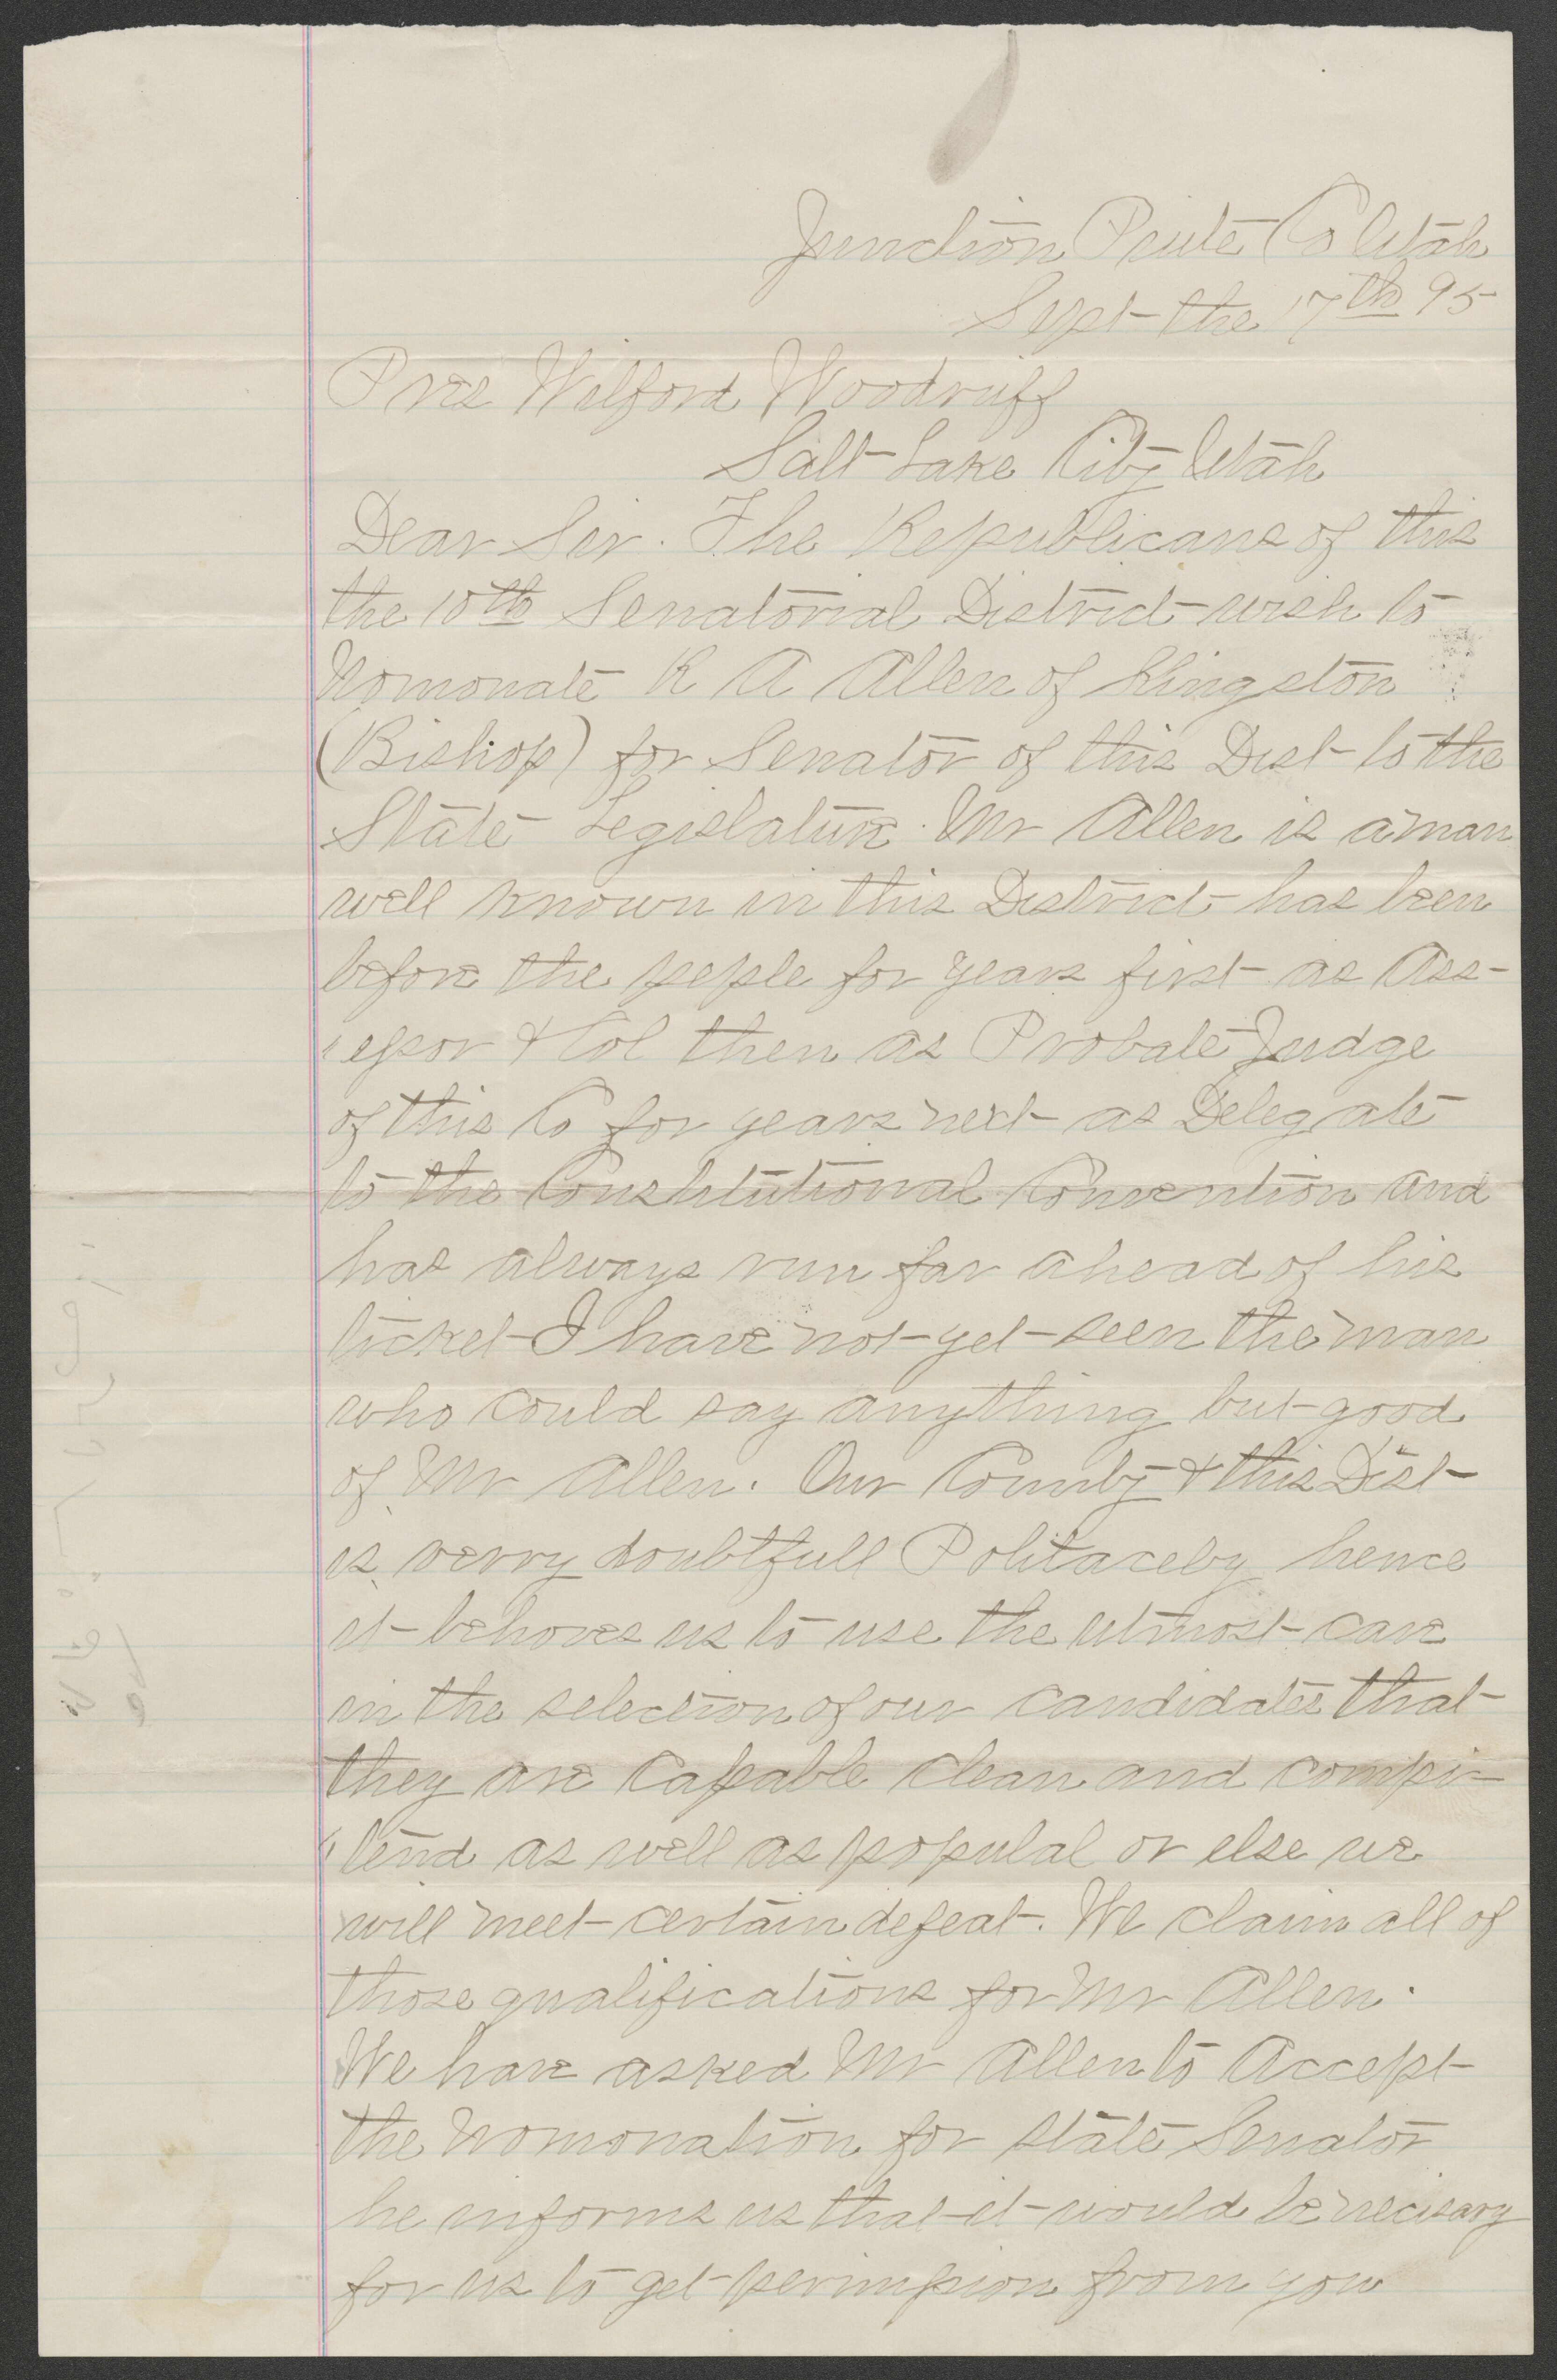 Junction Piute Co Utah
Sept the 17th 95
Pres Wilford Woodruff
Salt Lake City Utah
Dear Sir. The Republicans of this
the 10th Senatorial District wish to
Nomonate R A Allen of Kingston
(Bishop) for Senator of this Dist to the
State Legislature. Mr Allen is a man
well known in this District has been
before the peple for years first as Ass-
essor & Col then as Probate Judge
of this Co for years next as Delegate
to the Constitutional Convention and
has always run far ahead of his
ticket I have not yet seen the man
who could say anything but good
of Mr Allen. Our County & this Dist
is verry doubtfull Politacely hence
it behoves us to use the utmost care
in the selection of our candidates that
they are Capable Clean and compi-
tend as well as populal or else we
will meet certain defeat. We claim all of
those qualifications for Mr Allen.
We have asked Mr Allen to Accept
the Nomonation for state Senator
he informs us that it would be necisary
for us to get permission from you